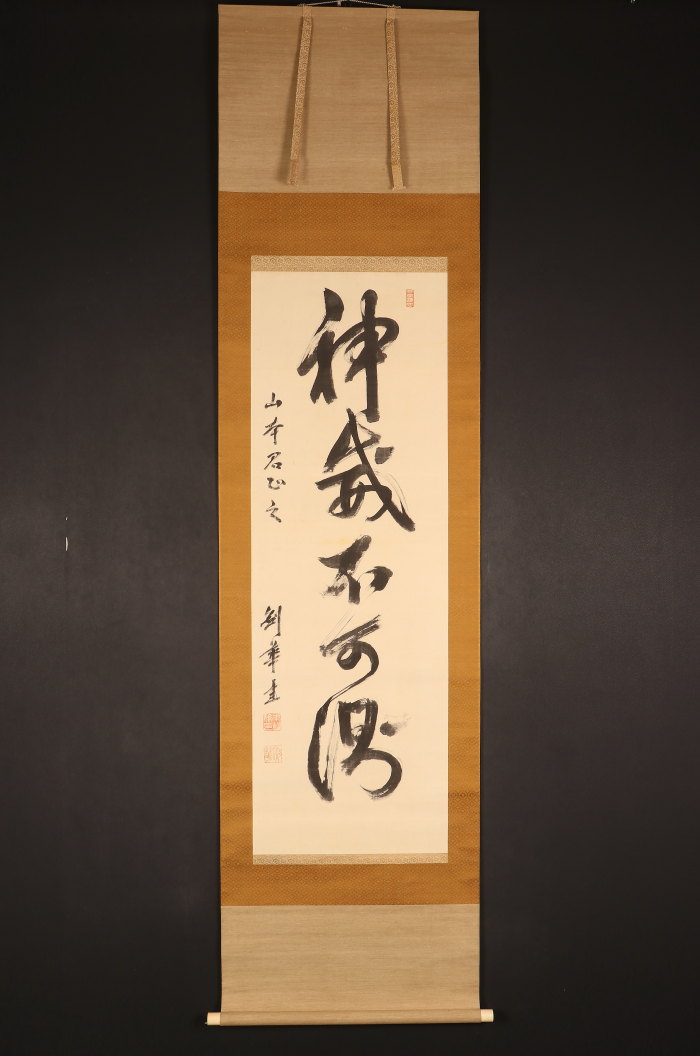 神威不可測
山本君正之
剑華書